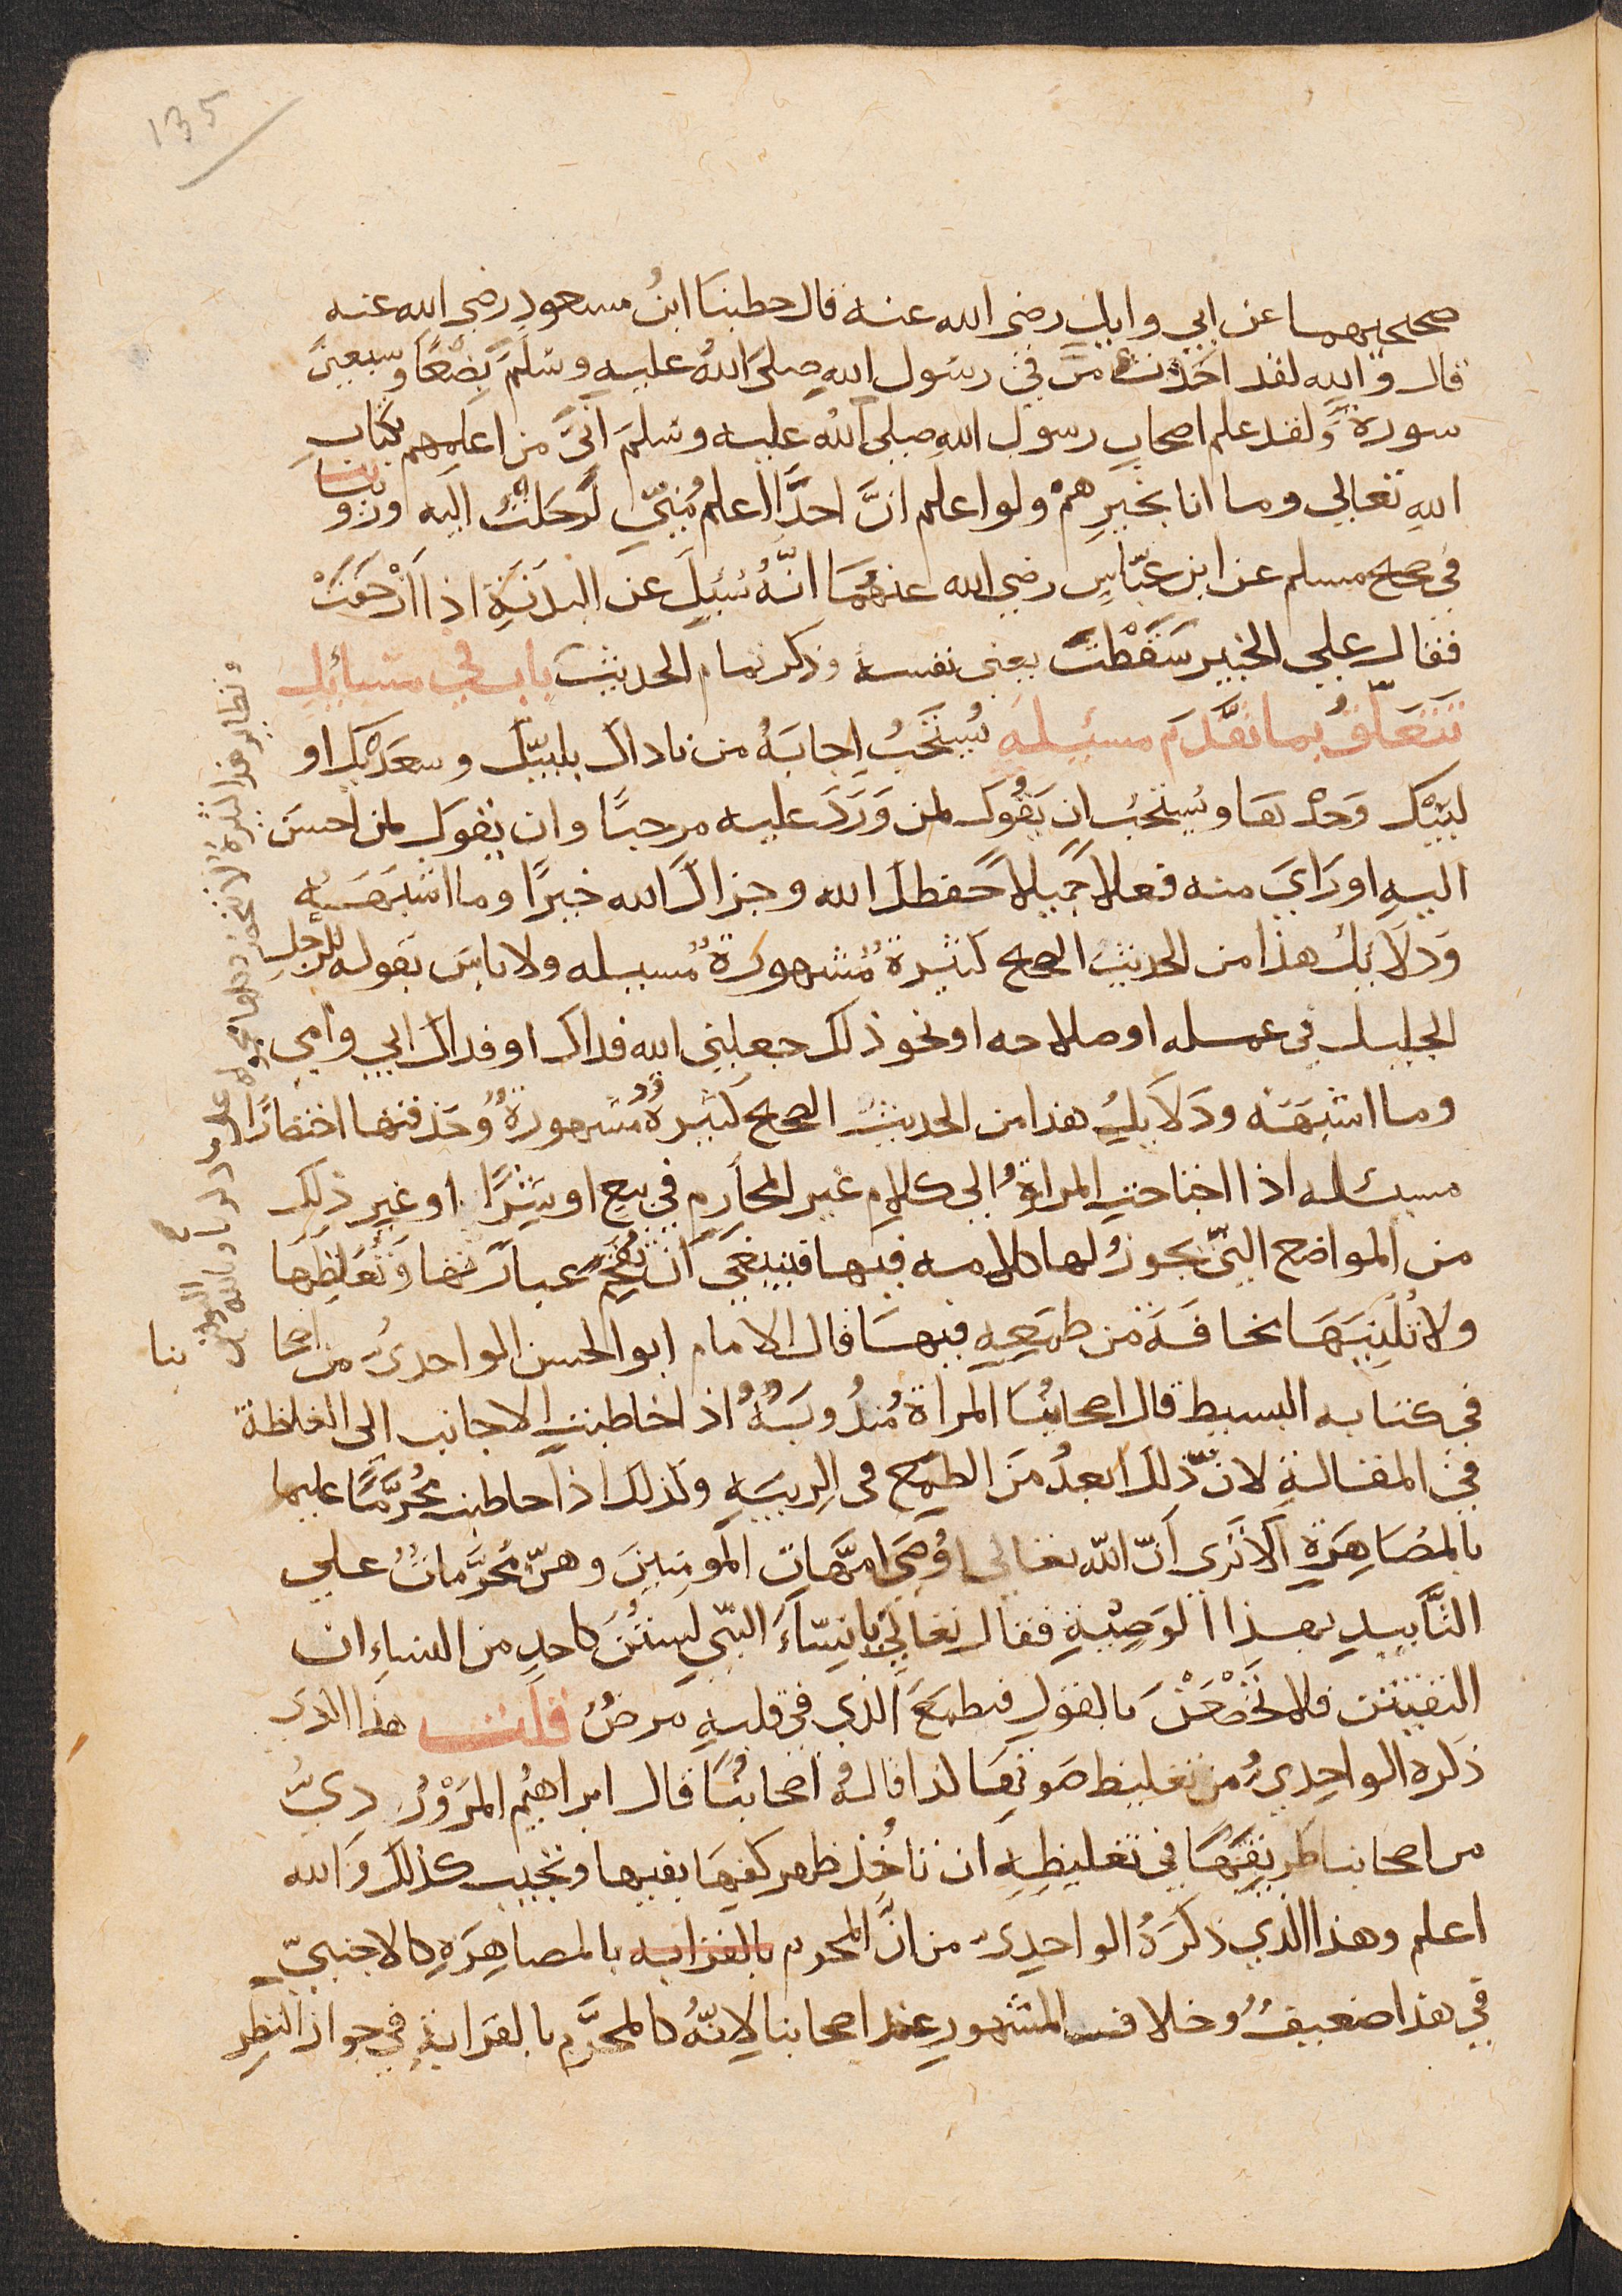 135
صحيحيهما عن ابي وايل رضى الله عنه قال حطبنا ابنُ مسعودٍ رضى الله عنه
قال والله لقد اخذت من فى رسول الله صلى اللهُ عليه وسَلَّمَ بِضْعًا وسبعينَ
سورة وَلقد علم اصحاب رسول اللهِ صلى اللهُ عليه وسَلمَ انّى من اعلمهم بكتابِ
اللهِ تعالى وما انا بخيرِهمْ ولو اعلم انَّ احدًا اعلم مِنّى لرَحَلتُ اليه وروينا
فى صحيح مسلم عن ابن عبّاسٍ رضى الله عنهُمَا انّهُ سُئِلَ عن البدنَةِ اذا ازْحَفَتْ
فقال على الخبير سَقَطْتَ يعنى نفسه وذكر تمام الحديث باب فى مسائِلَ
تتعَلّقُ بما تقَدَّمَ مسئلة يُستَحَبُ اِجابَةُ من ناداك بلبيّك وسعدَيْك او
لبيْك وَحْدَها ويُستحبُ ان يَقُوَل لمن وَرَدَ عليه مرحبًا وان يقولَ لمن احسَنَ
اليهِ او رَاىَ منه فعلا جَميلاً حفظك الله وجزاكَ الله خيرًا وما اشبَهَهُ
وَدلاَئِل هذا من الحديث الصحيح كثيرة مُشهورةٌ مُسيله ولا باسَ بقوله للرّجلِ
الجليل فى عمله او صلاحه او نحو ذلك جعلنى الله فداك او فداك ابى وامى
وما اشبَهَه ودَلاَيِلُ هذا من الحديث الصحيح كثيرةٌ مُشهورةٌ وُحَذفتها اختصارًا
مسئله اذا احتاحت المراةُ الى كلامِ غير المحاَرِم فى بيعٍ او شِرًا او غير ذلك
من المواضع الّتى يجوزُ لها كلامه فيها فينبغىَ ان تُفَخِّم عبارَتها وَتُغَلِظَهَا
ولا تُلَيِنَهَا مخافَةً من طمَعِهِ فيهَا قال الامام ابو الحسن الواحدىُ من اصحابنا
فى كتابه البسيط قال اصحابُنَا المراة مُندُوبَةٌ اذا خاطبتِ الاجانب الى الغلظة
فى المقالةِ لانّ ذلك ابعدُ مَن الطمع فى الرِيبَهِ وكذلك اذا حاطبت مُحرَّمًا عليها
بالمُصَاهِرَةِ الاَ تَرَى اَنّ اللّه تعالى اوْصَى امَّهات المومِنينَ وهنّ مُحَرَّماتُ على
التّأبيدِ بهذا الوَصِيَّةِ فقال تعالى يا نِسَاءَ النّبى لستُنَ كاحدٍ من النساءِ ان
اتقيتن فلا تَخْضَعْنَ بالقولِ فيطمَعَ الّذى فى قلبهِ مَرضٌ قلت هذا الذى
ذكره الواحِدِىُ من تغليظ صَوتها كذا قالهُ اصحابُنَا قال ابراهِيُم المَرْوُرذِىُّ
من اصحابنا طريقتهَا فى تغليظِهِ ان تاخُذ ظهر كفها بفيها وتجيب كذلك وَالله
اعلم وهذا الّذى ذكَرَهُ الواحِدِىَ من انَّ المحرم بالقرابه بالمصاهِرَهِ كالاجنبىّ
فى هذا ضعيفٌ وخلاف المشهورِ عند اصحابنا لاِنّهُ كالمحَرَّم بالقرابةِ فى جواز النّظرِ
ونظاير هذا كثيرة لا تنحصر